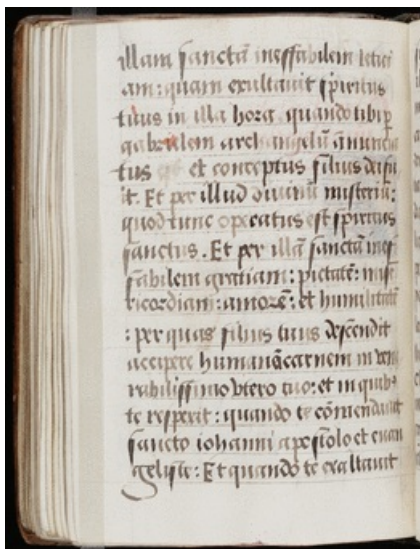 illam sanctã ineffabilem letici
am: quam exultauit spiritus
tuus in illa hora quando tibi ꝑ
gabrielem archangelũ ãnuncia
tus est et conceptus filius dei fu
it. Et per illud diuinũ misteriũ:
quod tunc operatus est spiritus
sanctus. Et per illã sanctã inef
fabilem gratiam: pietatẽ: mise
ricordiam: amorẽ: et humilitatẽ
: per quas filius tuus descendit
accipere humanã carnem in ven
rabilissimo vtero tuo: et in quibꝰ
te respexit: quando te cõmendauit
sancto iohanni apostolo et euan
geliste: Et quando te exaltauit